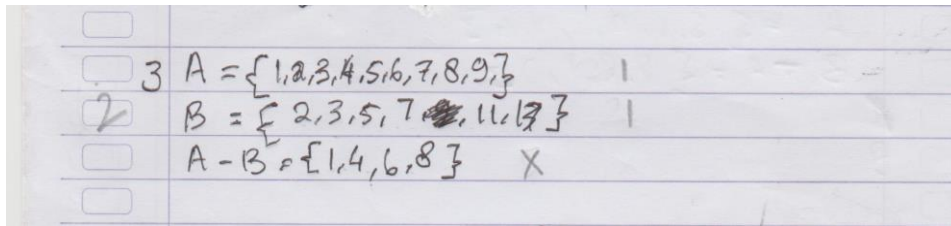 3 A = {1,2,3,4,5,6,7,8,9,} 1
2 B = { 2,3,5,7, 11,13 } 1
A - B = {1,4,6,8} X